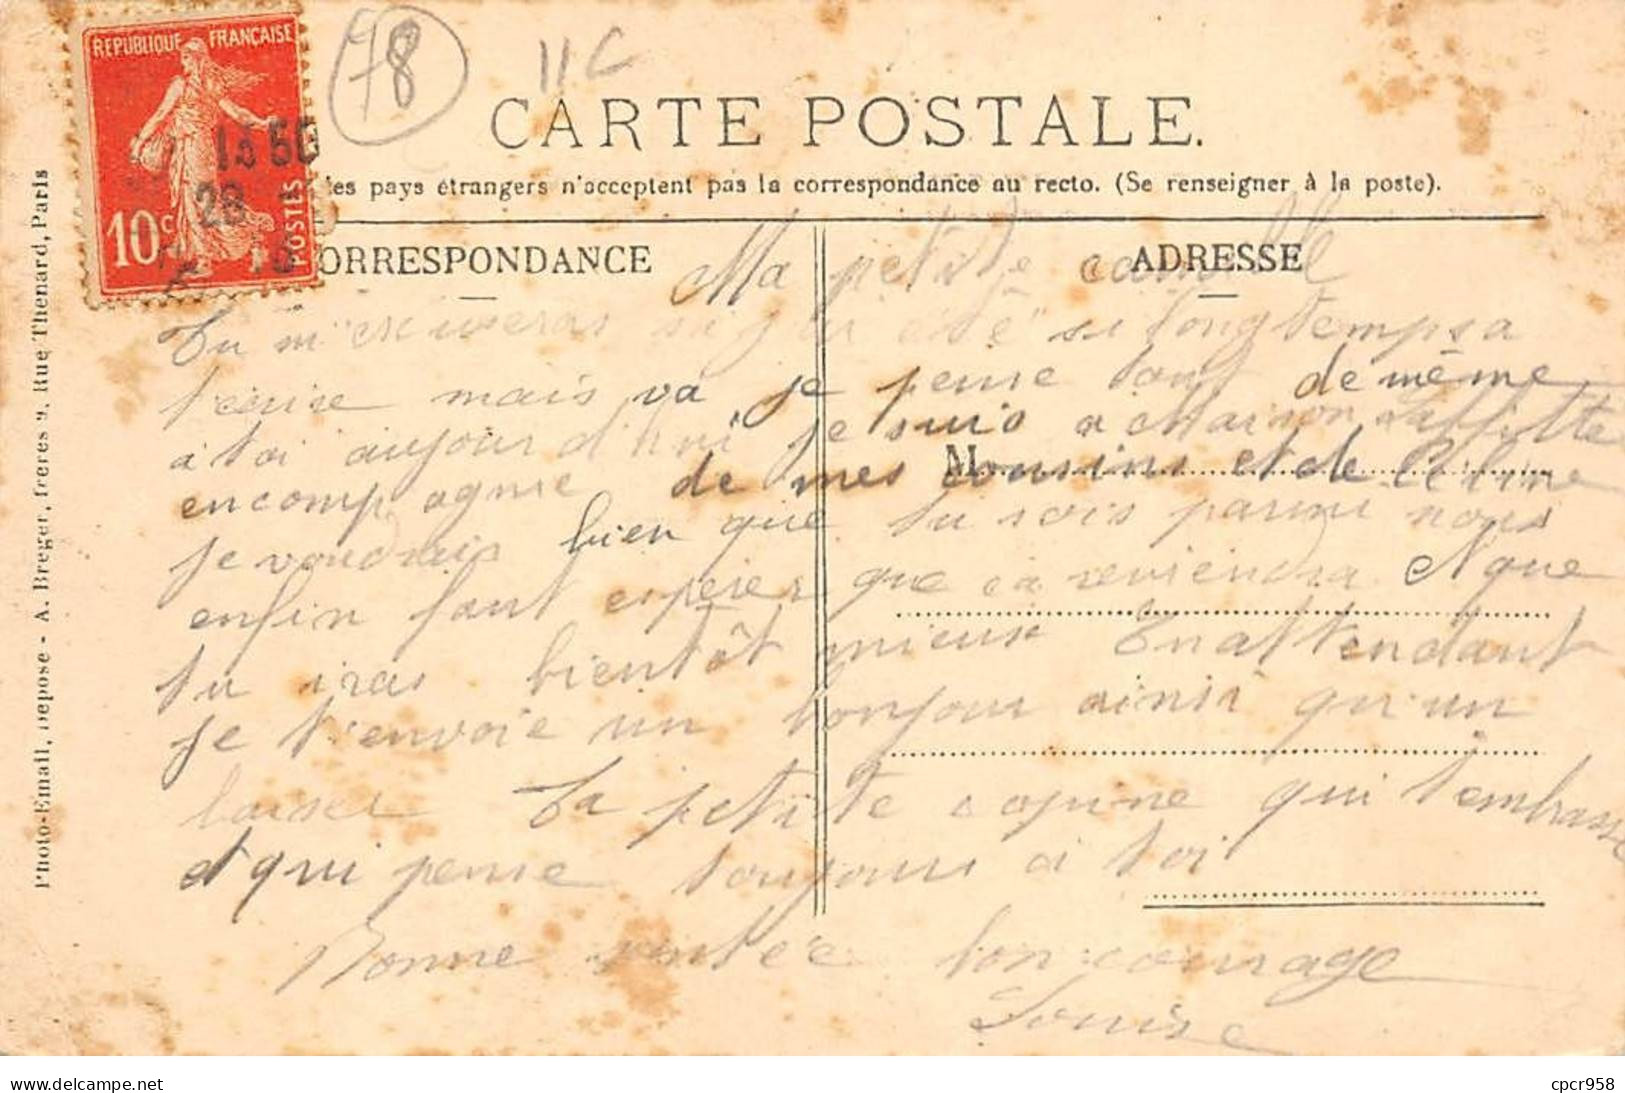 REPUBLIQUE FRANÇAISE
10c POSTES
13 50
28
78
11C
CARTE POSTALE.
les pays étrangers n'acceptent pas la correspondance au recto. (Se renseigner à la poste).
ORRESPONDANCE
ADRESSE
M
Photo-Email, Déposé - A. Breger, frères 9, Rue Thénard, Paris
Ma petite camille
Tu m' si j'ai été si longtemps a
t'ecrire mais va je pense tout de même
à toi aujourd'hui je suis a Maison Laffitte
en compagnie de mes cousins et de
je voudrais bien que tu sois parmi nous
enfin faut esperer que ça reviendra et que
tu iras bientôt mieux En attendant
je t'envoie un bonjour ainsi qu'un
baiser Ta petite copine qui t'embrasse
et qui pense toujours à toi
Bonne santée bon courage
Louise
cpcr958